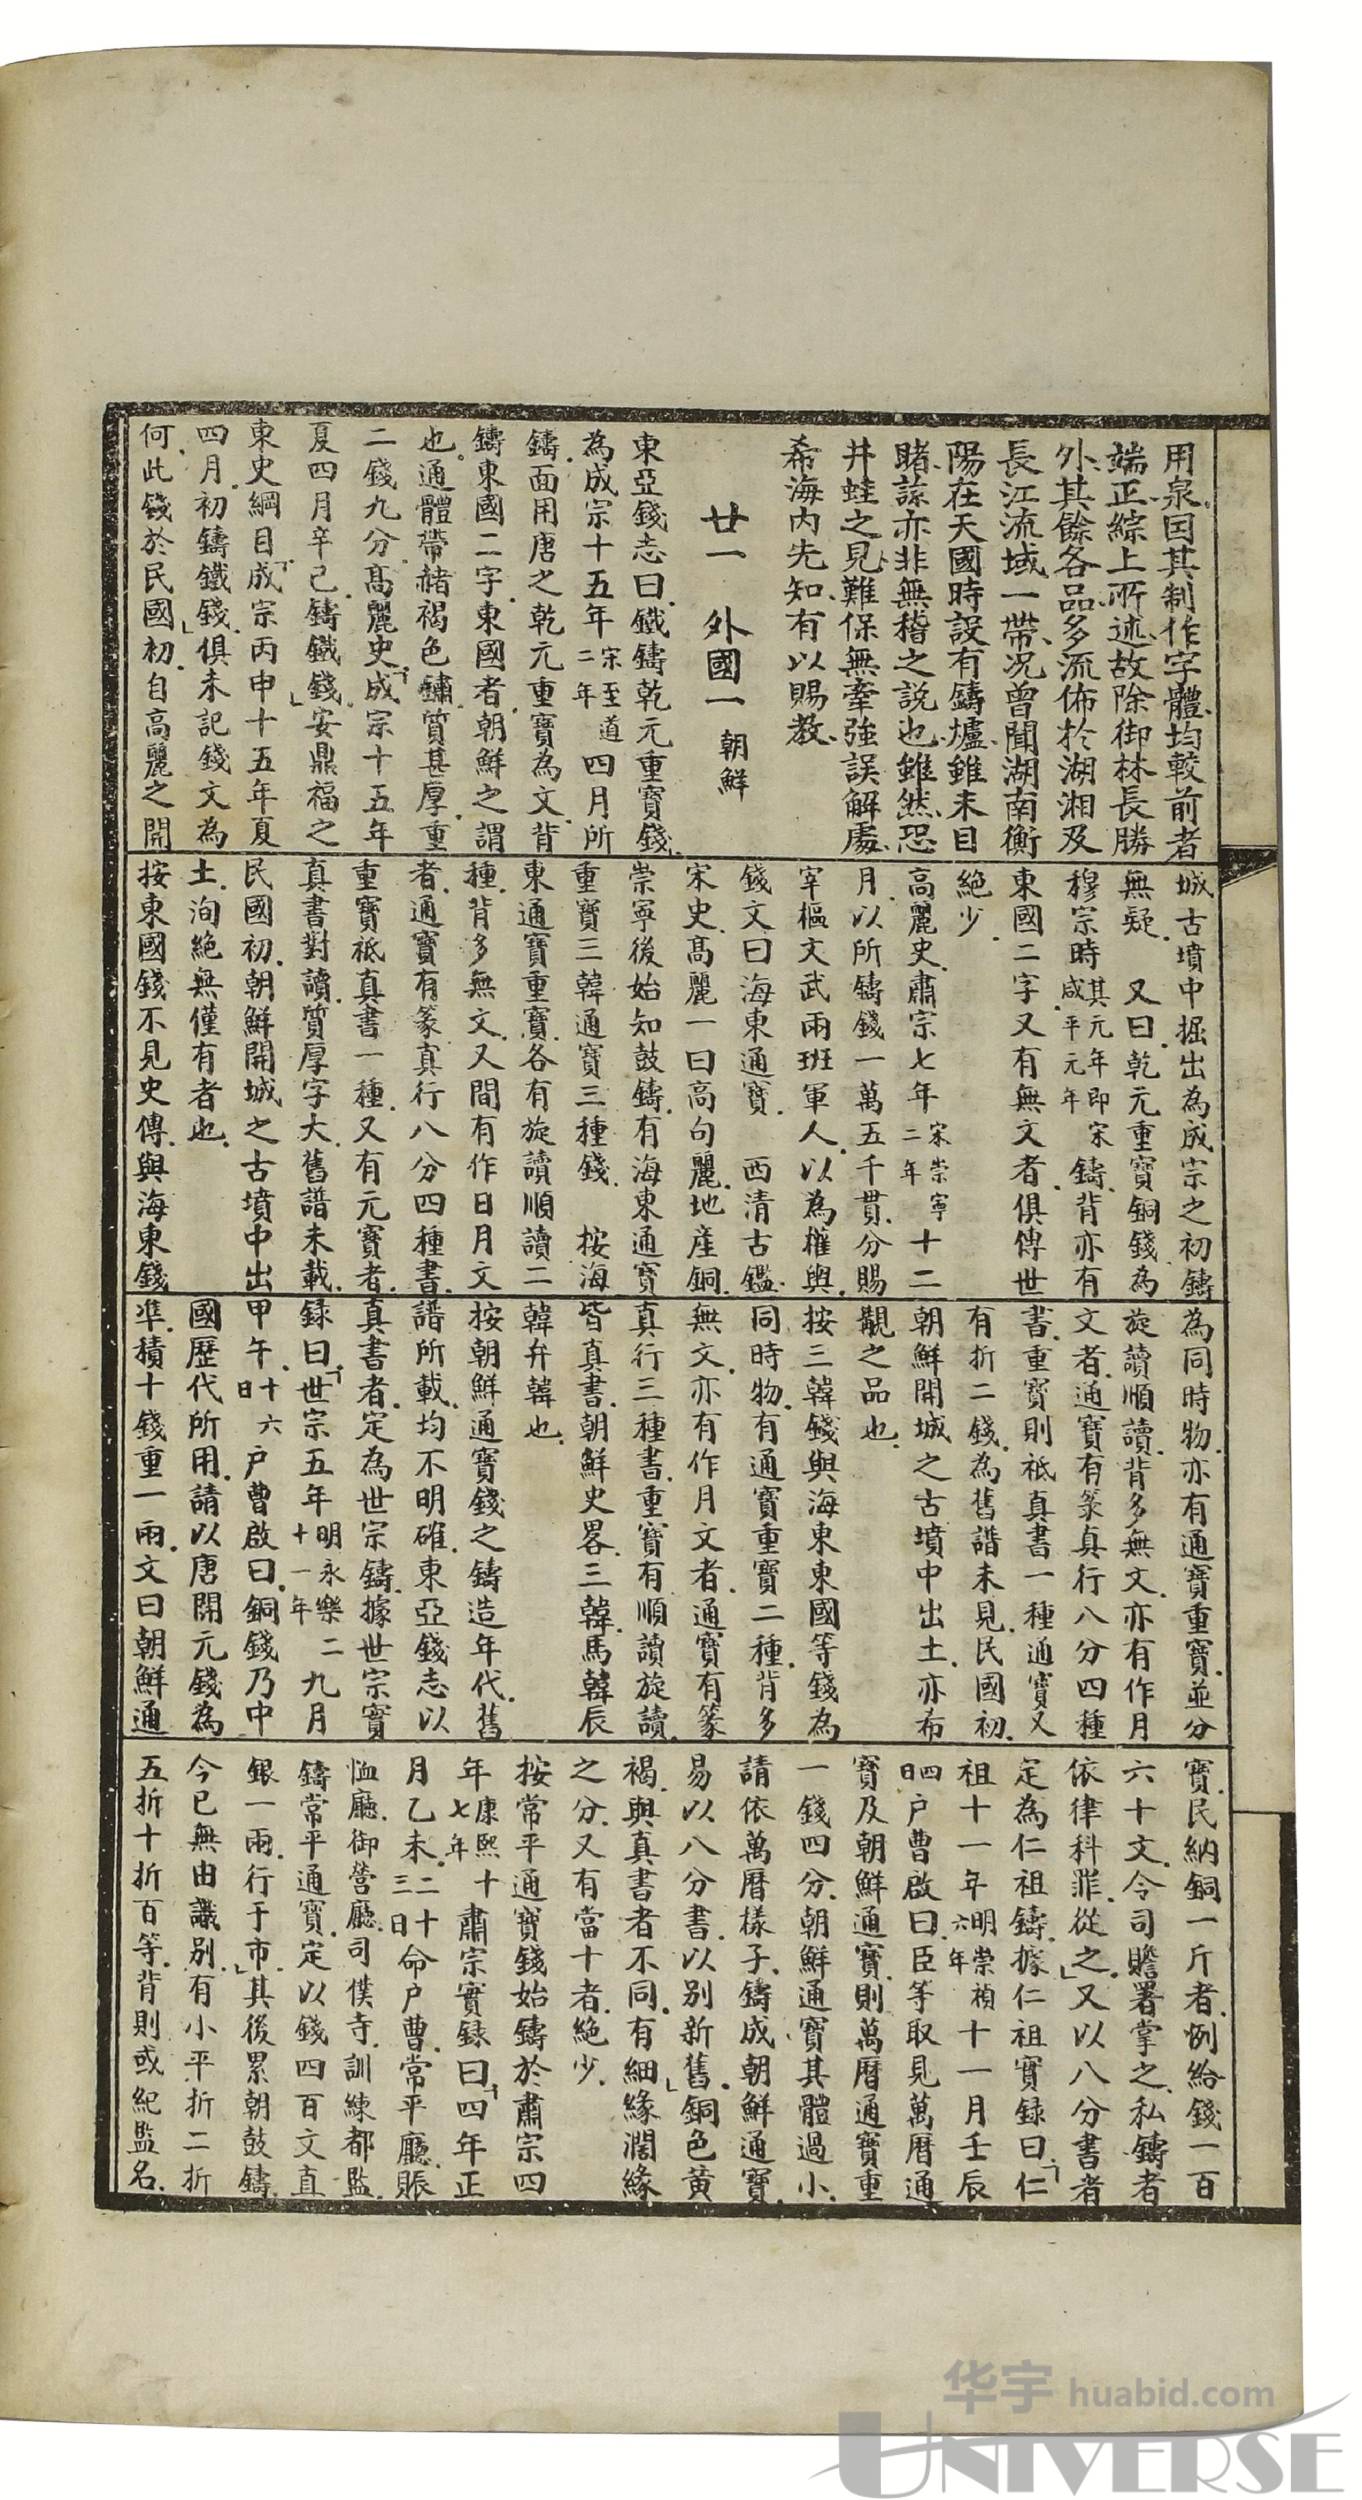 用泉因其制作字體均較前者
端正綜上所述故除御林長勝
外其餘各品多流佈於湖湘及
長江流域一帶況曾聞湖南衡
陽在天國時設有鑄爐雖未目
睹諒亦非無稽之說也雖然恐
井蛙之見難保無牽強誤解處
希海內先知有以賜教
廿一　外國一　朝鮮
東亞錢志曰鐵鑄乾元重寶錢
為成宗十五年宋至道二年四月所
鑄面用唐之乾元重寶為文背
鑄東國二字東國者朝鮮之謂
也通體帶赭褐色鏽質甚厚重
二錢九分高麗史「成宗十五年
夏四月辛己鑄鐵錢」安鼎福之
東史綱目「成宗丙申十五年夏
四月初鑄鐵錢」俱未記錢文為
何此錢於民國初自高麗之開
城古墳中掘出為成宗之初鑄
無疑　又曰乾元重寶銅錢為
穆宗時其元年即宋咸平元年鑄背亦有
東國二字又有無文者俱傳世
絕少
高麗史肅宗七年宋崇寧二年十二
月以所鑄錢一萬五千貫分賜
宰樞文武兩班軍人以為權輿
錢文曰海東通寶　西清古鑑
宋史高麗一曰高句麗地產銅
崇寧後始知鼓鑄有海東通寶
重寶三韓通寶三種錢　按海
東通寶重寶各有旋讀順讀二
種背多無文又間有作日月文
者通寶有篆真行八分四種書
重寶祗真書一種又有元寶者
真書對讀質厚字大舊譜未載
民國初朝鮮開城之古墳中出
土洵絕無僅有者也
按東國錢不見史傳與海東錢
為同時物亦有通寶重寶並分
旋讀順讀背多無文亦有作月
文者通寶有篆真行八分四種
書重寶則祗真書一種通寶又
有折二錢為舊譜未見民國初
朝鮮開城之古墳中出土亦希
覯之品也
按三韓錢與海東東國等錢為
同時物有通寶重寶二種背多
無文亦有作月文者通寶有篆
真行三種書重寶有順讀旋讀
皆真書朝鮮史畧三韓馬韓辰
韓弁韓也
按朝鮮通寶錢之鑄造年代舊
譜所載均不明確東亞錢志以
真書者定為世宗鑄據世宗實
録曰「世宗五年明永樂二十一年九月
甲午十六日户曹啟曰銅錢乃中
國歷代所用請以唐開元錢為
準積十錢重一兩文曰朝鮮通
寶民納銅一斤者例給錢一百
六十文令司贍署掌之私鑄者
依律科罪從之」又以八分書者
定為仁祖鑄據仁祖實録曰「仁
祖十一年明崇禎六年十一月壬辰
四日户曹啟曰臣等取見萬曆通
寶及朝鮮通寶則萬曆通寶重
一錢四分朝鮮通寶其體過小
請依萬曆樣子鑄成朝鮮通寶
易以八分書以別新舊」銅色黃
褐與真書者不同有細緣濶緣
之分又有當十者絕少
按常平通寶錢始鑄於肅宗四
年康熙十七年肅宗實録曰「四年正
月乙未二十三日命户曹常平廳賑
恤廳御營廳司僕寺訓練都監
鑄常平通寶定以錢四百文直
銀一兩行于市」其後累朝鼓鑄
今已無由識別有小平折二折
五折十折百等背則或紀監名
华宇 huabid.com
UNIVERSE